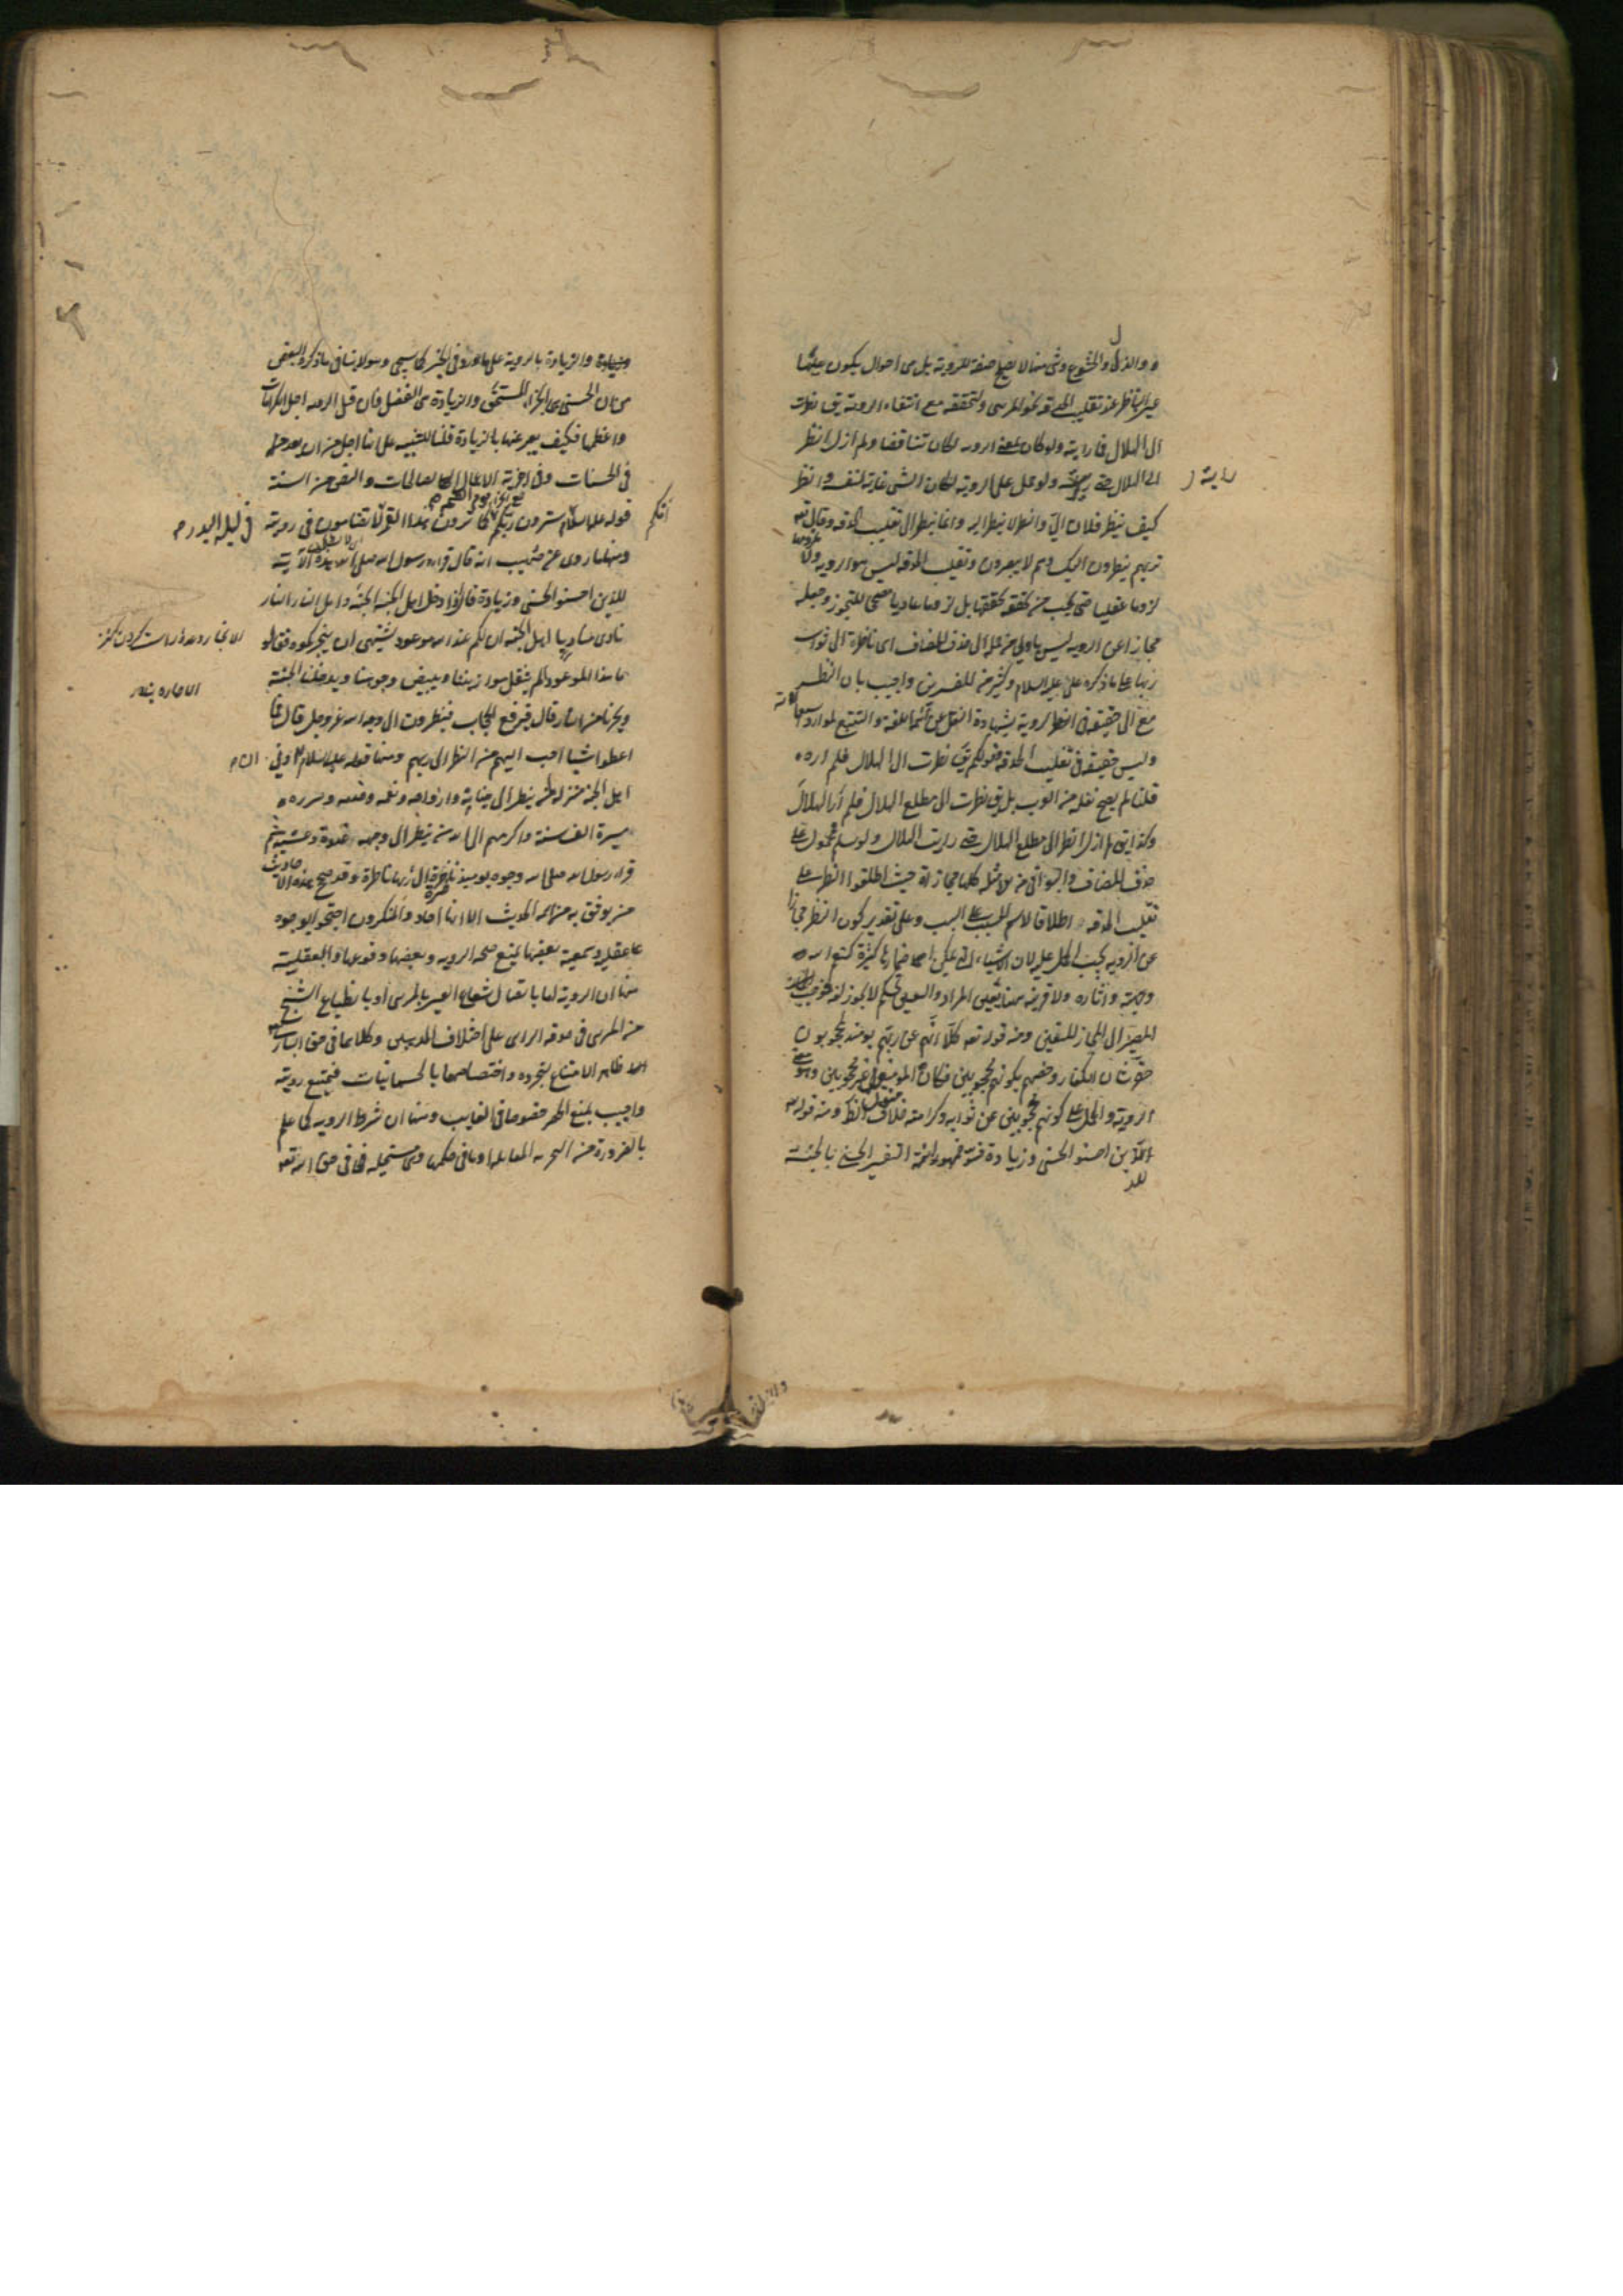 والذل والخشوع وشئ منها لا يصلح صفة للرؤية بل هى احوال يكون عليها
عين الناظر عند تقليب الحدقة نحو المرئى ولتحققه مع انتفاء الرؤية يق نظرت
الى الهلال فما رايته ولو كان بمعنى الروية لكان تناقضا ولم ازل انظر
الى الهلال حتى رايته ولو حمل على الروية لكان الشئ غاية لنفسه وانظر
رايته
كيف ينظر فلان الىّ وانظر لا ينظر اليه وانما ينظر الى تقليب الحدقة وقال تعه
تريهم ينظرون اليك وهم لا يبصرون وتقليب الحدقة ليس هو الرويه ولا ملزومها
لزوما عقليا حتى يجب من تحققه تحققها بل لزوما عاديا مصححا للتجوز وجعله
مجازا عن الرويه ليس باولى من حمله الى حذف المضاف اى ناظرة الى ثواب
ربها على ما ذكره على عليه السلام وكثير من المفسرين واجيب بان النظر
مع الى حقيقة فى الروية بشهادة النقل عن ائمة اللغة والتتبع لموارد استعمالاته
وليس حقيقة فى تقليب الحدقة قولكم يق نظرت الى الهلال فلم اره
قلنا لم يصح نقله من العرب بل يق نظرت الى مطلع الهلال فلم ار الهلال
وكذا يق لم ازل انظر الى مطلع الهلال حتى رايت الهلال ولو سلم فمحمول على
حذف المضاف والبواقى من الامثلة كلها مجازات حيث اطلقوا النظر على
تقليب الحدقة اطلاقا لاسم المسبب على السبب وعلى تقدير كون النظر مجازا
عن الروية يجب الحمل عليه لان الاشياء التى يمكن اضمارها كثيرة كنعم الله
وجهته واثاره ولا قرينه هنا تعين المراد والتعيين تحكم لا يجوز لغة فوجب
المصير الى المجاز المتعين ومنه قوله تعه كلا انهم عن ربهم يومئذ لمحجوبون
حقر شان الكفار وخصهم بكونهم محجوبين فكان المؤمنون غير محجوبين وهو معنى
الروية والحمل على كونهم محجوبين عن ثوابه وكرامته خلاف الظ ومنه قوله تعه
للذين احسنوا الحسنى وزيادة فسر جمهور ائمة التفسير الحسنى بالجنة
والزيادة بالروية على ما ورد فى الخبر كما سيجئ وهو لا ينافى ما ذكره البعض
من ان الحسنى هى الجزاء المستحق والزيادة هى الفضل فان قيل الروية اجل الكرامات
واعظمها فكيف يعبر عنها بالزيادة قلنا للتنبيه على انها اجل من ان يعد
فى الحسنات وفى اجزية الاعمال الصالحات والنص من السنة
قوله عليه السلام انكم سترون ربكم يوم القيمة كما ترون هذا القمر لا تضامون فى رؤيته
فى ليلة البدر
ومنها ما روى عن صهيب انه قال قرا رسول الله صلى الله عليه هذه الآية
للذين احسنوا الحسنى وزيادة قال اذا دخل اهل الجنة الجنة واهل النار النار
نادى مناد يا اهل الجنة ان لكم عند الله موعدا يشتهى ان ينجزكموه فقالوا
ما هذا الموعود الم يثقل موازيننا ويبيض وجوهنا ويدخلنا الجنة
ويجرنا من النار قال فيرفع الحجاب فينظرون الى وجه الله عز وجل قال فما
اعطوا شيئا احب اليهم من النظر الى ربهم ومنها قوله عليه السلام ان ادنى
اهل الجنة منزلة لمن ينظر الى جنانه وازواجه ونعمه وخدمه وسرره
مسيرة الف سنة واكرمهم الى الله من ينظر الى وجهه غدوة وعشية ثم
قرا رسول الله صلى الله وجوه يومئذ ناضرة الى ربها ناظرة وقد صحح هذه الاحاديث
من يوثق به من ائمة الحديث الا انها احاد والمنكرون احتجوا بوجوه
عقلية وسمعية بعضها يمنع صحة الرويه وبعضها وقوعها والعقلية
منها ان الروية اما باتصال شعاع العين بالمرئى او بانطباع الشبح
من المرئى فى حدقة الرائى على اختلاف المذهبين وكلاهما فى حق البارى
ظاهر الامتناع لتجرده واختصاصهما بالجسمانيات فيمتنع رويته
واجيب بمنع الحصر خصوصا فى الغايب ومنها ان شرط الرويه كما علم
بالضرورة من التجربه المقابلة او ما فى حكمها وهى مستحيله فى حق الله تعه